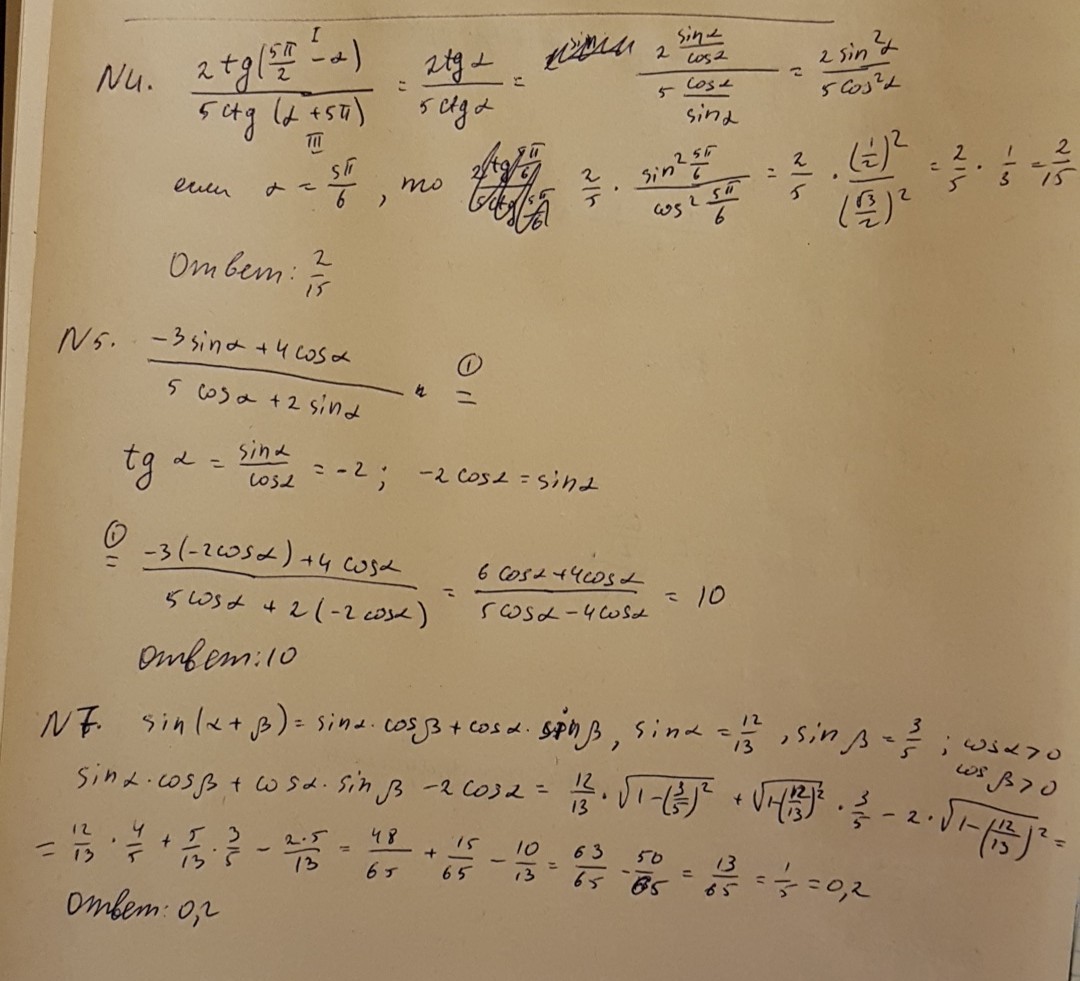 N4. 2 tg(5π/2 - α) / 5 ctg (α + 5π) = 2tg α / 5 ctg α = 2 sinα/cosα / 5 cosα/sinα = 2 sin²α / 5 cos²α
I
III
если α = 5π/6, то 2/5 · sin² 5π/6 / cos² 5π/6 = 2/5 · (1/2)² / (√3/2)² = 2/5 · 1/3 = 2/15
Ответ: 2/15
N5. -3 sinα + 4 cosα / 5 cosα + 2 sinα ①=
tg α = sinα/cosα = -2; -2 cosα = sinα
①= -3(-2cosα) + 4 cosα / 5 cosα + 2(-2 cosα) = 6 cosα + 4cosα / 5 cosα - 4 cosα = 10
Ответ: 10
N7. sin(α + β) = sinα · cosβ + cosα · sinβ, sinα = 12/13, sin β = 3/5; cosα>0
cos β>0
sinα · cosβ + cosα · sin β - 2 cosα = 12/13 · √1-(3/5)² + √1-(12/13)² · 3/5 - 2 · √1-(12/13)² =
= 12/13 · 4/5 + 5/13 · 3/5 - 2·5/13 = 48/65 + 15/65 - 10/13 = 63/65 - 50/65 = 13/65 = 1/5 = 0,2
Ответ: 0,2